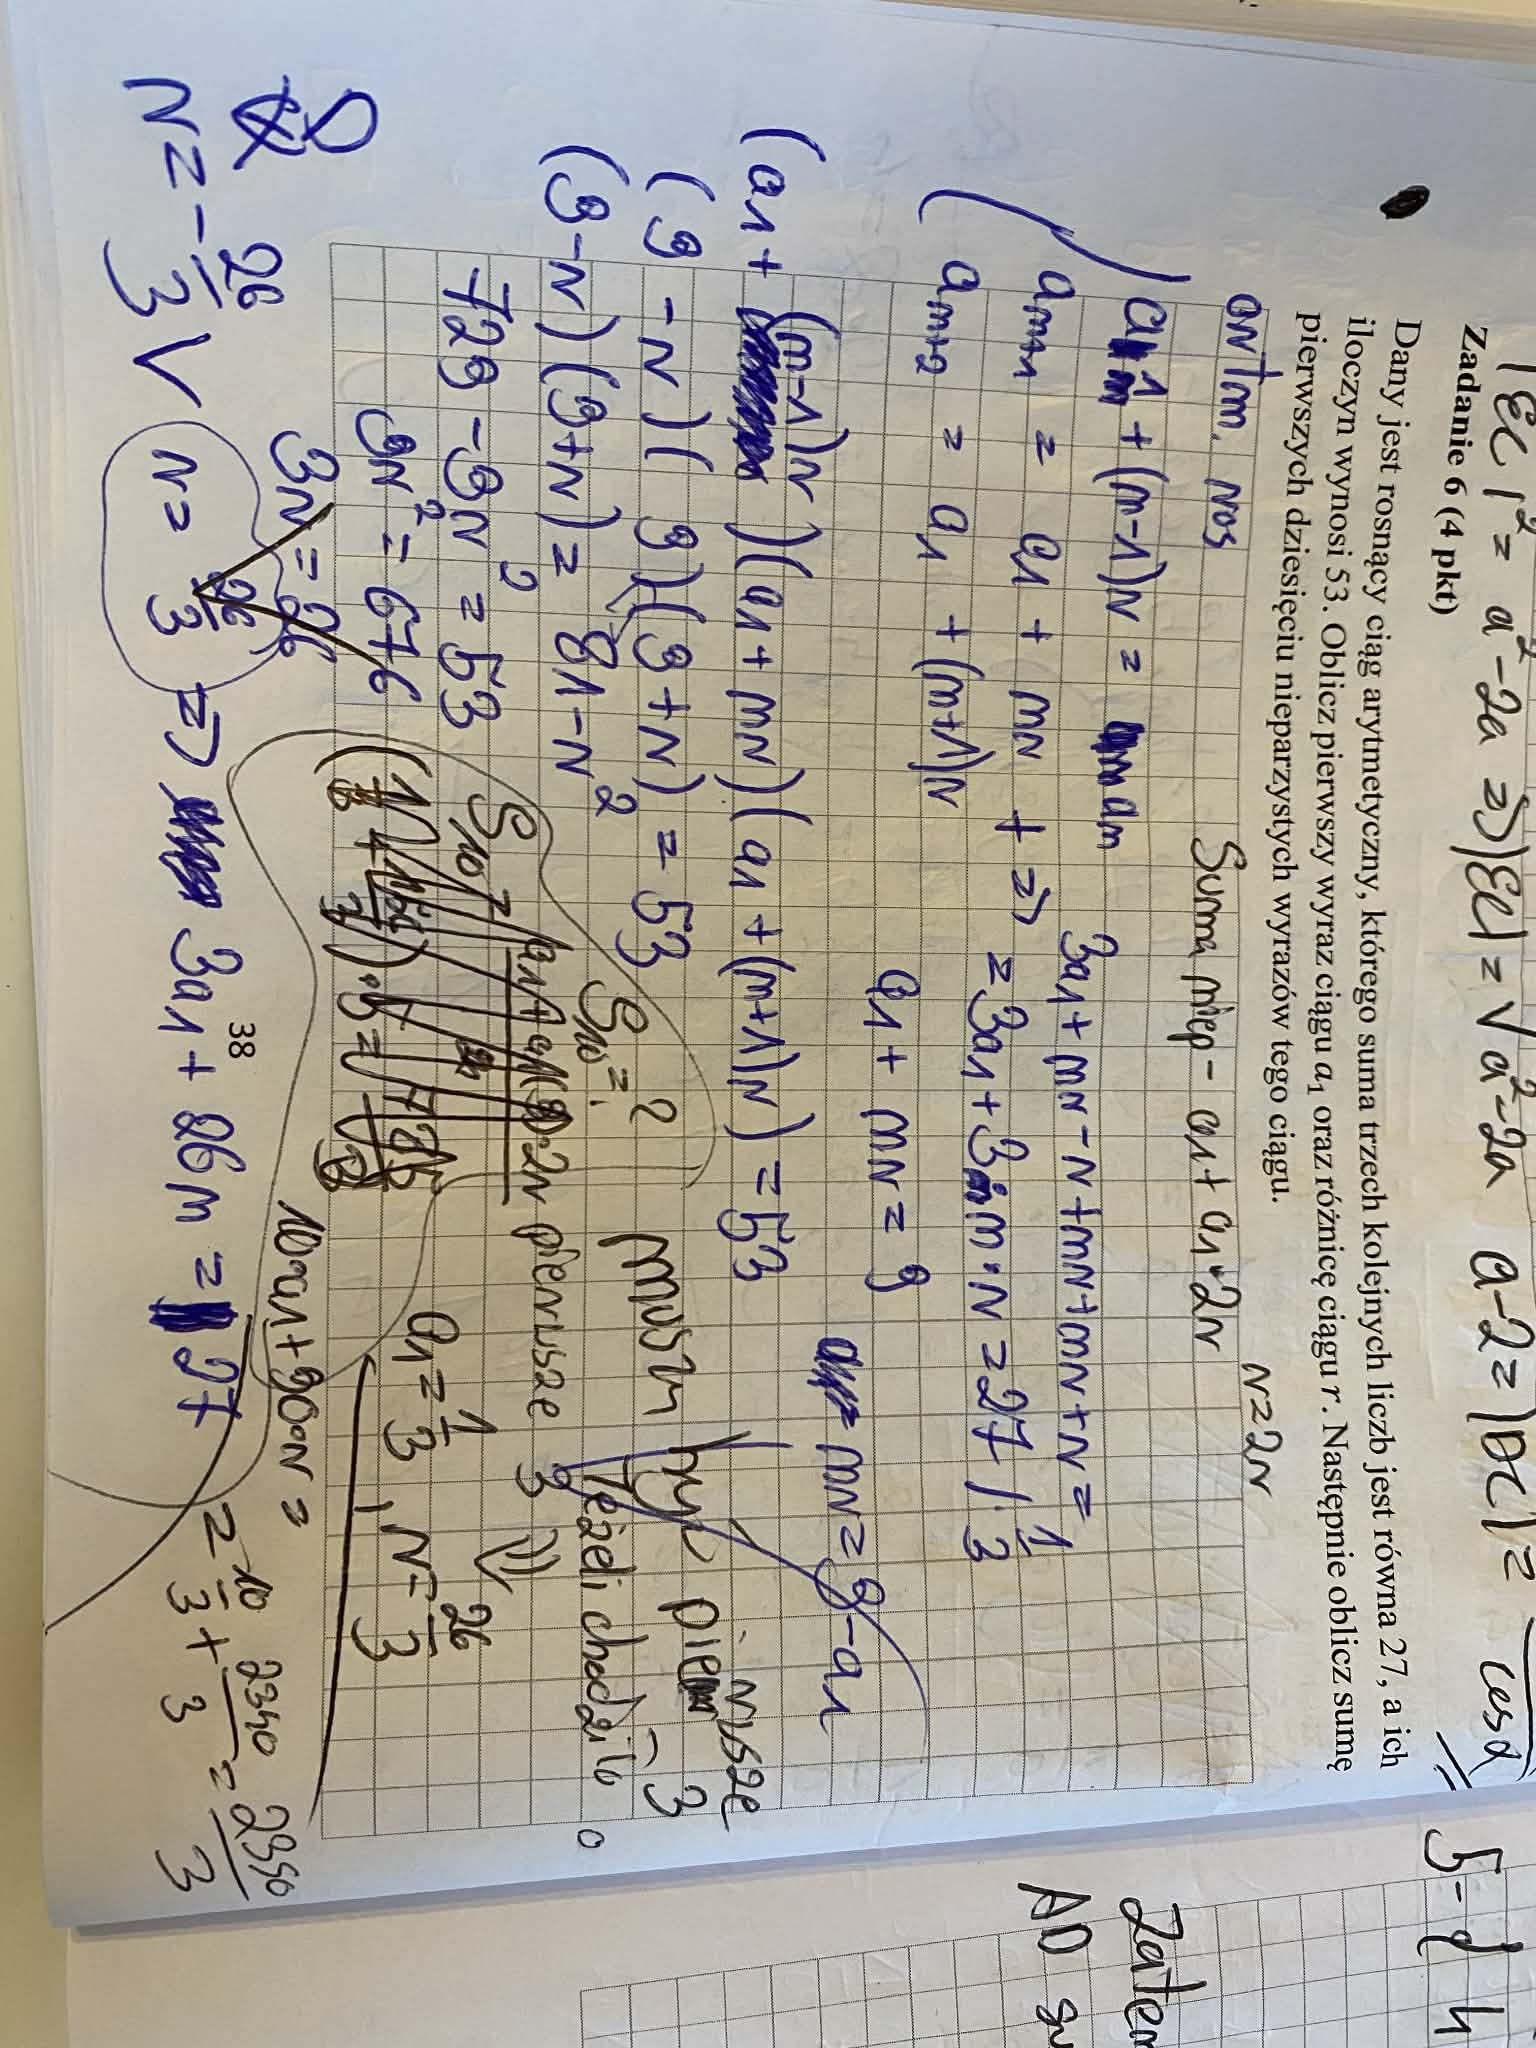 |EC|² = a² - 2a => |EC| = √a² - 2a a - 2 = |DC| =
cosα
Zadanie 6 (4 pkt)
Dany jest rosnący ciąg arytmetyczny, którego suma trzech kolejnych liczb jest równa 27, a ich
iloczyn wynosi 53. Oblicz pierwszy wyraz ciągu a₁ oraz różnicę ciągu r. Następnie oblicz sumę
pierwszych dziesięciu nieparzystych wyrazów tego ciągu.
r=2r
arytm. ros
Suma niep - a1 + a1 + 2r
a1 + (m-1)r = am
3a1 + mr - r + mr + mr + r =
am+1 = a1 + mr + =>
= 3a1 + 3m·r = 27 / ·1/3
am+2 = a1 + (m+1)r
a1 + mr = 9
mr = 9 - a1
(a1 + (m-1)r)(a1 + mr)(a1 + (m+1)r) = 53
(9 - r)( 9)(9 + r) = 53
(9-r)(9+r) = 81 - r²
729 - 9r² = 53
9r² = 676
3r = 26
r = 26/3
r = - 26/3 ∨
=> 3a1 + 26m = 27
S10 = ?
musz być pierwsze 3
Jeżeli chodziło o
pierwsze 3
a1 = 1/3 , r = 26/3
10a1 + 90r =
= 10/3 + 2340/3 = 2350/3
38
5-d
h
Zatem
AD